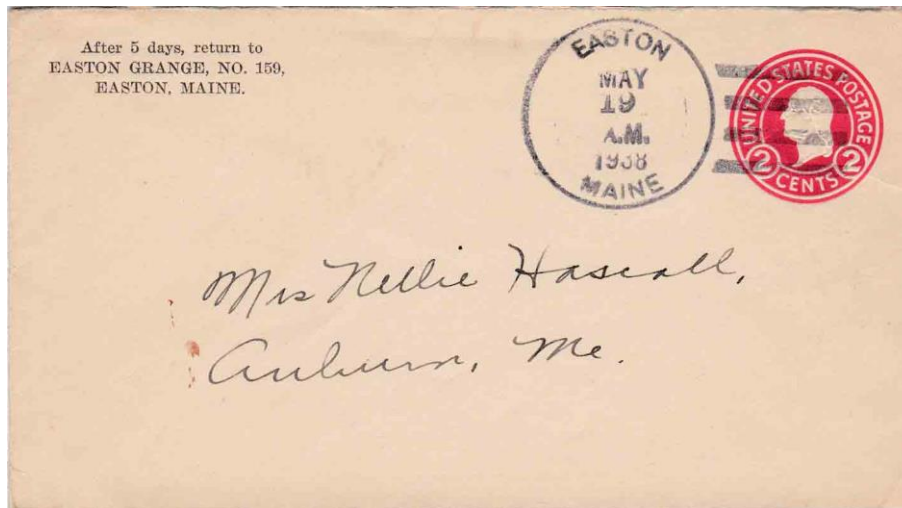 After 5 days, return to
EASTON GRANGE, NO. 159,
EASTON, MAINE.
EASTON
MAY
19
A.M.
1938
MAINE
UNITED STATES POSTAGE
2 CENTS 2
Mrs Nellie Hascall,
Auburn, Me.